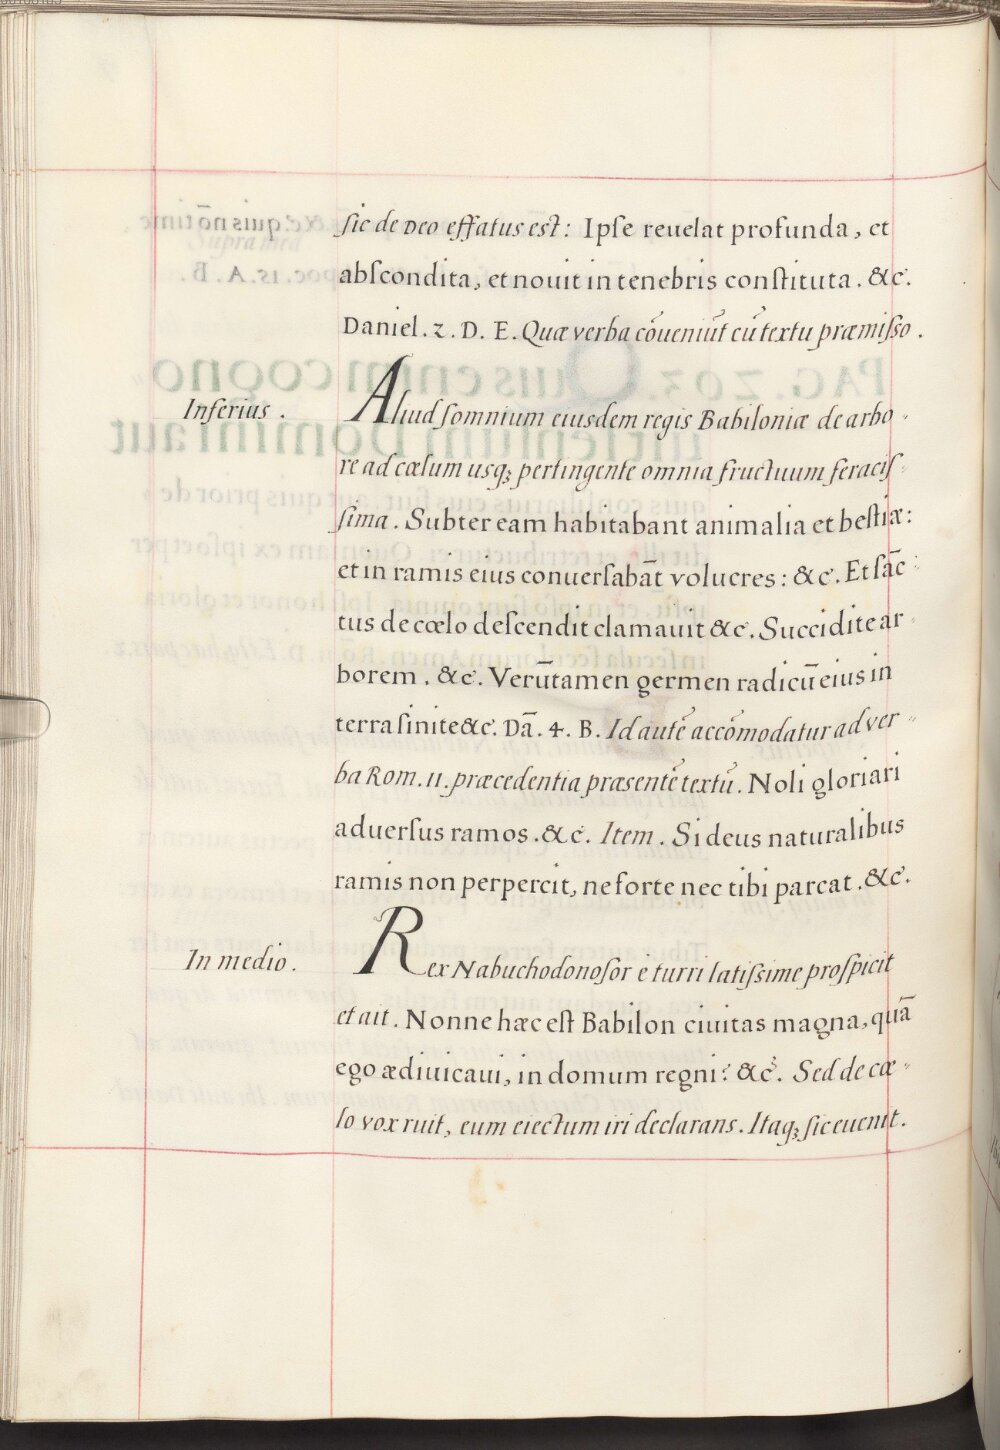 ſic de Deo effatus eſt: Ipſe reuelat profunda, et
abſcondita, et nouit in tenebris conſtituta. &c.
Daniel. 2. D. E. Quæ verba cōueniūt cū textu præmiſſo.
Inferius. Aliud ſomnium eiusdem regis Babiloniæ de arbo-
re ad cœlum usqꝫ pertingente omnia fructuum feraciſ-
ſima. Subter eam habitabant animalia et beſtiæ:
et in ramis eius conuerſabāt volucres: &c. Et ſāc-
tus de cœlo deſcendit clamauit &c. Succidite ar-
borem. &c. Verūtamen germen radicū eius in
terra ſinite &c. Dā. 4. B. Id autē accōmodatur ad ver-
ba Rom. 11. præcedentia præsentē textū. Noli gloriari
aduerſus ramos. &c. Item. Si deus naturalibus
ramis non perpercit, ne forte nec tibi parcat. &c.
In medio. Rex Nabuchodonoſor è turri latiſsime proſpicit
et ait. Nonne hæc eſt Babilon ciuitas magna, quā
ego ædiuicaui, in domum regni? &c. Sed de cœ-
lo vox ruit, eum eiectum iri declarans. Itaqꝫ ſic euenit.